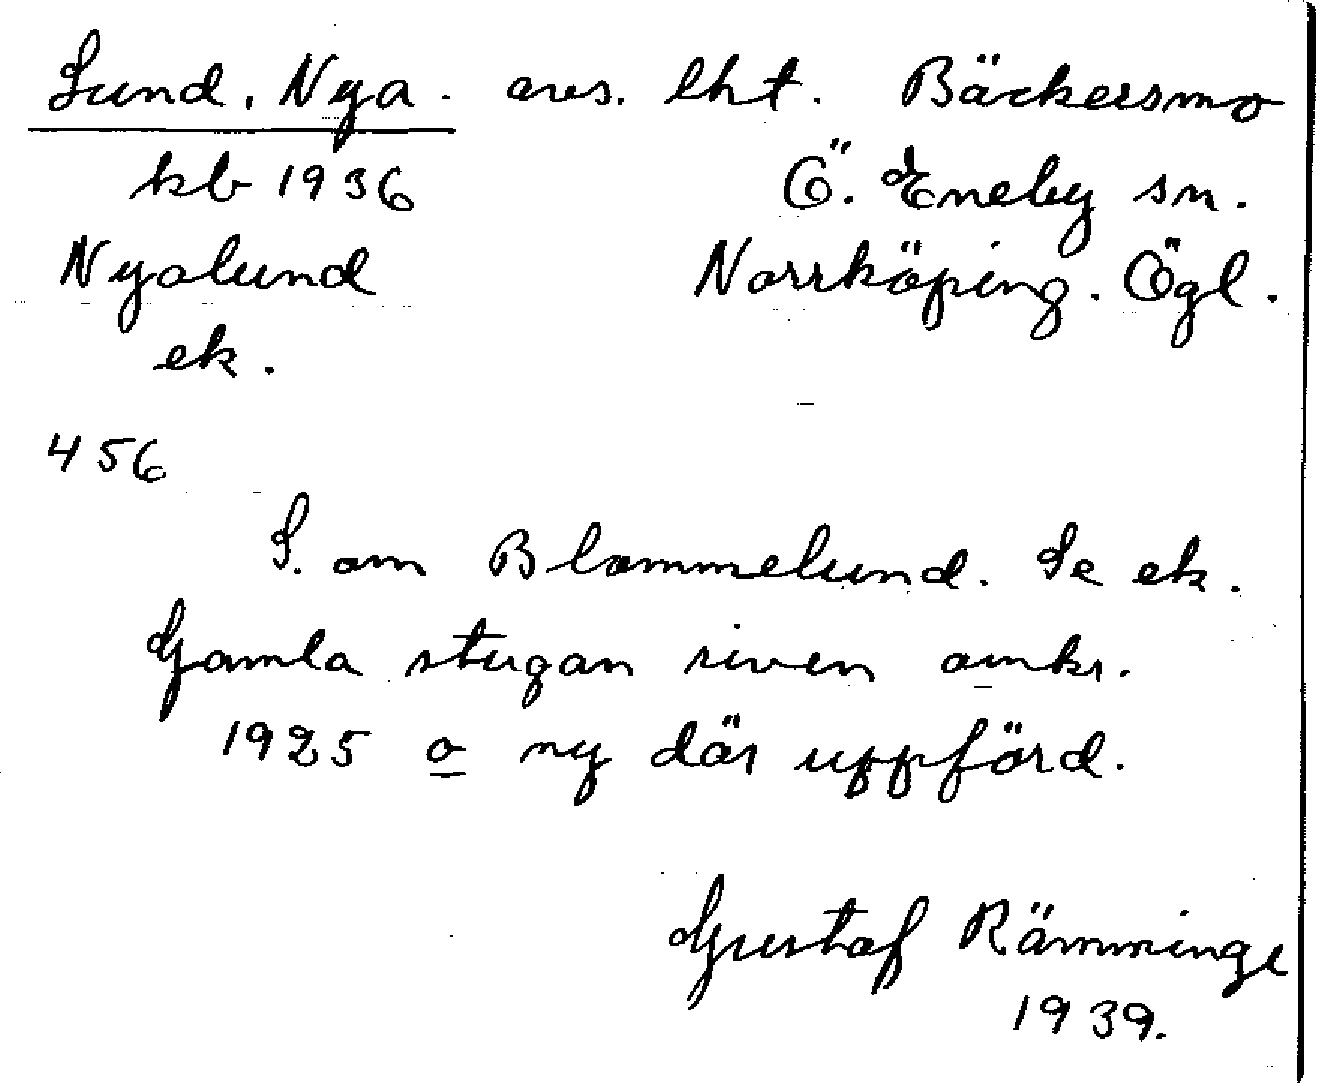 Lund, Nya. avs. lht. Bäckersmo
kb 1936 Ö. Eneby sn.
Nyalund Norrköping. Ögl.
ek.
456
S. om Blommelund. Se ek.
Gamla stugan riven omkr.
1925 o ny där uppförd.
Gustaf Rämminge
1939.